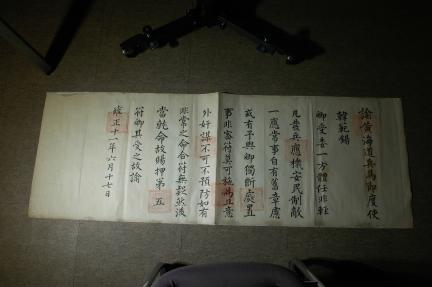 諭黃海道兵馬節度使
韓範錫
卿受委一方體任非輕
凡發兵應機安民制敵
一應常事自有舊章慮
或有予與卿獨斷處置
事非密符莫可施爲且意
外奸謀不可不預防如有
非常之命合符無疑然後
當就命故賜押第五
符卿其受之故諭
雍正十一年六月十七日